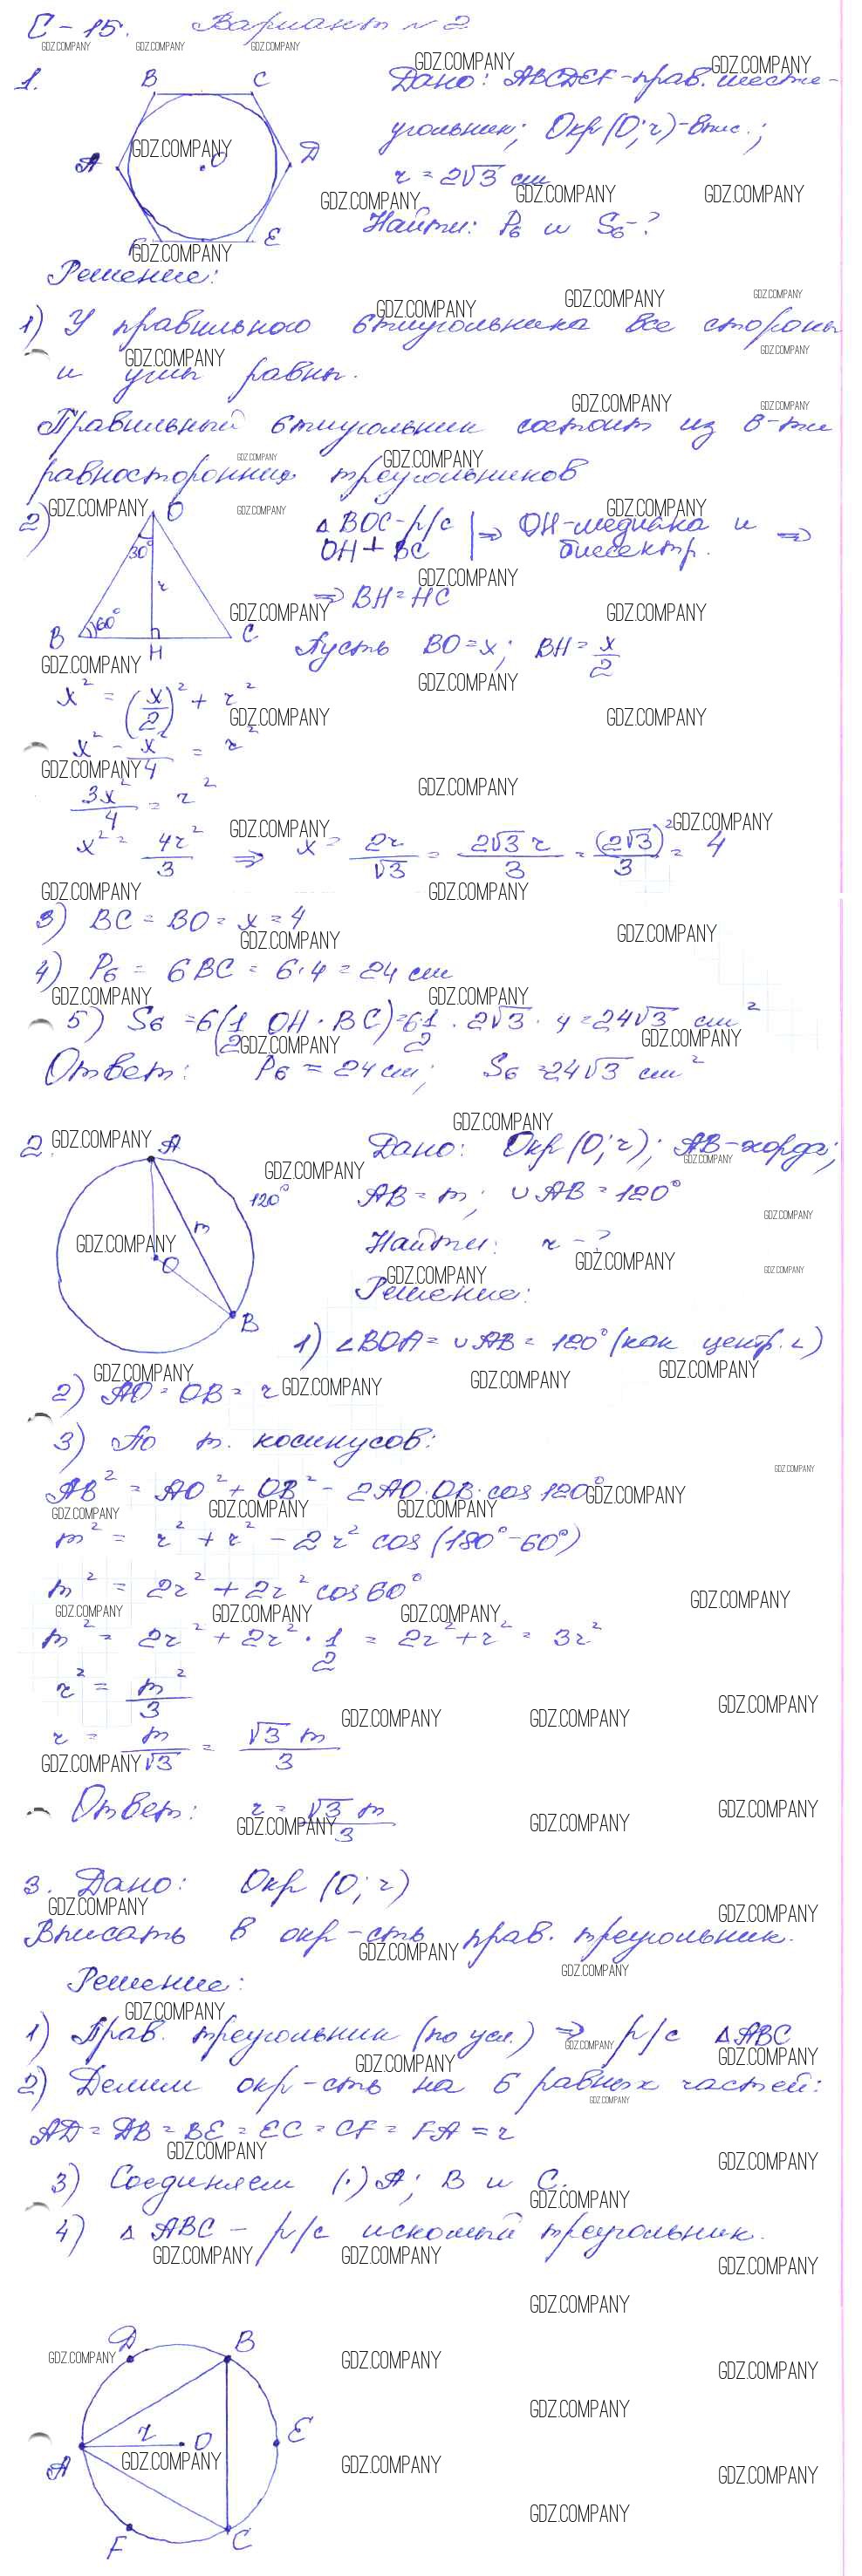 С-15. Вариант №2
1. B C
A O D
F E
Дано: ABCDEF-прав. шести-
угольник; Окр(O;r)-впис.;
r = 2√3 см
Найти: P₆ и S₆-?
Решение:
1) У правильного 6тиугольника все стороны
и углы равны.
Правильный 6тиугольник состоит из 6-ти
равносторонних треугольников
2) O 30° r 60° B H C
△BOC-р/с | ⇒ OH-медиана и ⇒
OH⊥BC | биссектр.
⇒ BH=HC
Пусть BO=x; BH=x/2
x² = (x/2)² + r²
x² - x²/4 = r²
3x²/4 = r²
x² = 4r²/3 ⇒ x = 2r/√3 = 2√3 r/3 = (2√3)²/3 = 4
3) BC = BO = x = 4
4) P₆ = 6BC = 6·4 = 24 см
5) S₆ = 6(1/2 OH·BC) = 6·1/2·2√3·4 = 24√3 см²
Ответ: P₆ = 24 см; S₆ = 24√3 см²
2. A 120° m O B
Дано: Окр(O;r); AB-хорда;
AB = m; ∪AB = 120°
Найти: r - ?
Решение:
1) ∠BOA = ∪AB = 120° (как центр. ∠)
2) AO = OB = r
3) По т. косинусов:
AB² = AO² + OB² - 2AO·OB·cos 120°
m² = r² + r² - 2r² cos(180°-60°)
m² = 2r² + 2r² cos 60°
m² = 2r² + 2r²·1/2 = 2r² + r² = 3r²
r² = m²/3
r = m/√3 = √3 m/3
Ответ: r = √3 m/3
3. Дано: Окр(O;r)
Вписать в окр-сть прав. треугольник.
Решение:
1) Прав. треугольник (по усл.) ⇒ р/с △ABC
2) Делим окр-сть на 6 равных частей:
AD = DB = BE = EC = CF = FA = r
3) Соединяем (·) A; B и C.
4) △ABC - р/с искомый треугольник.
D B
r O E
A
F C
GDZ.COMPANY